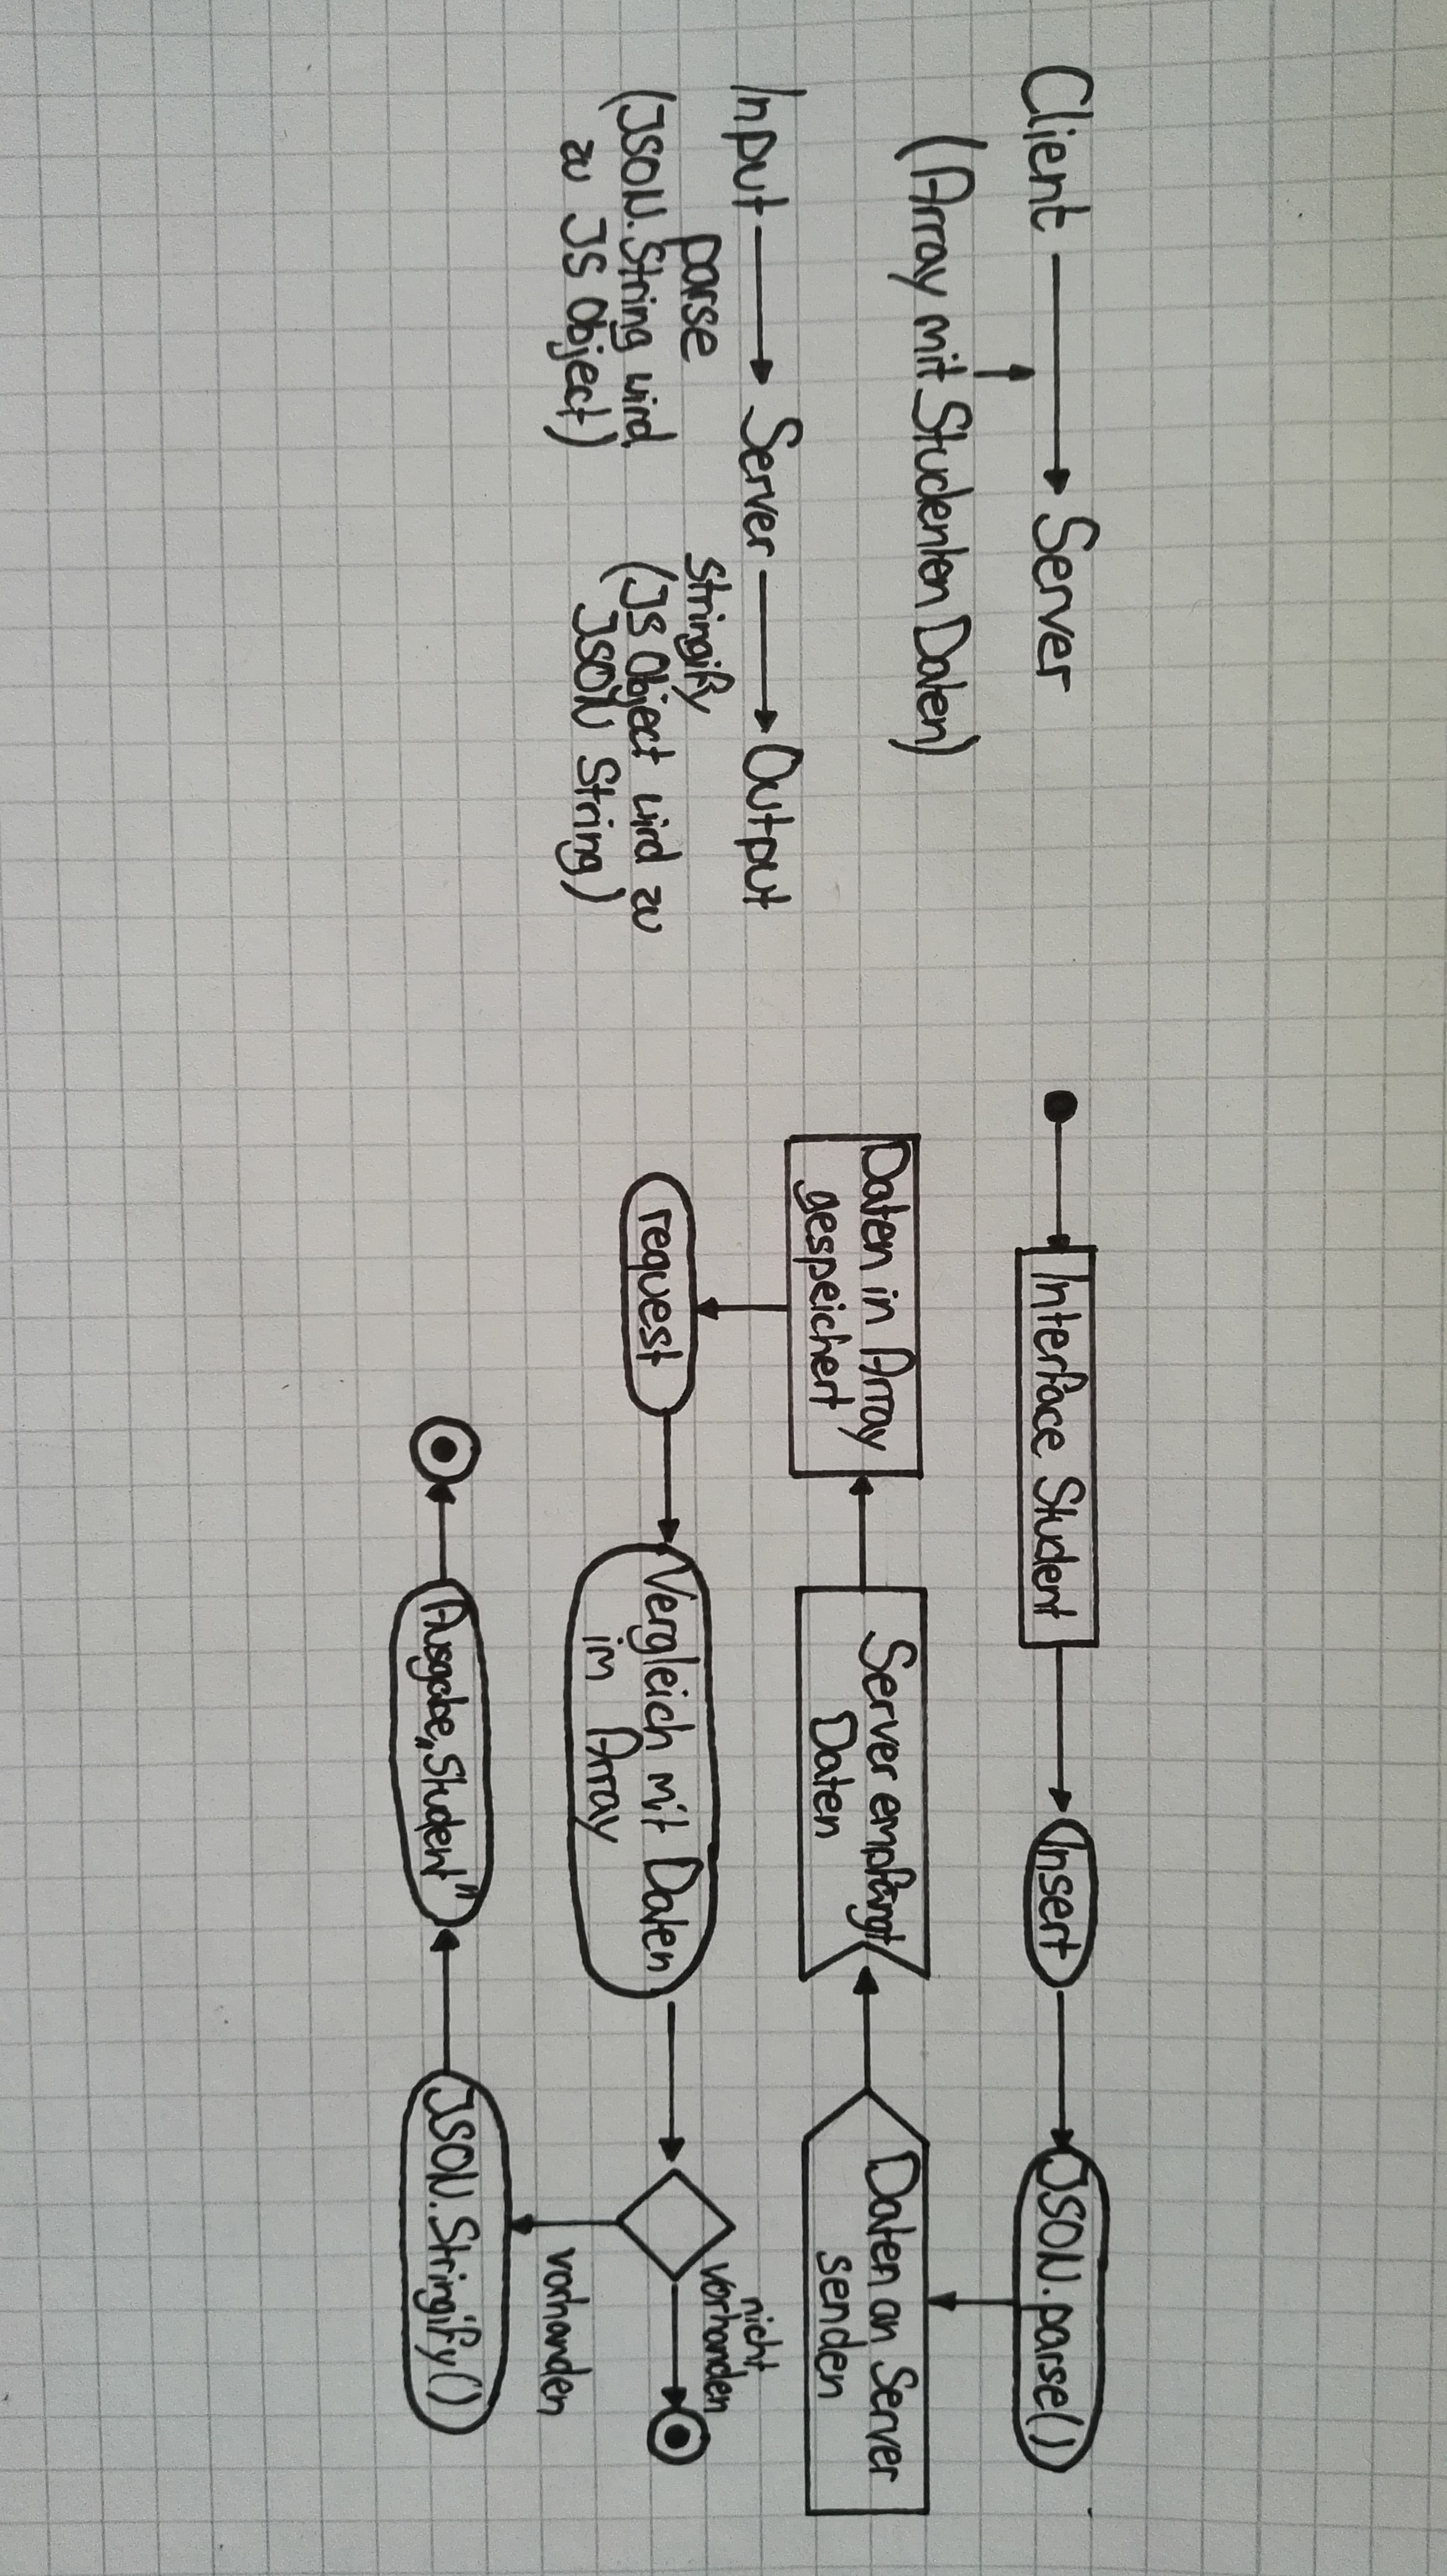 Client
Server
(Array mit Studenten Daten)
Input
Server
Output
parse
(JSON.String wird
zu JS Object)
Stringify
(JS Object wird zu
JSON String)
Interface Student
Insert
JSON.parse()
Daten an Server
senden
Server empfängt
Daten
Daten in Array
gespeichert
request
Vergleich mit Daten
im Array
nicht
vorhanden
vorhanden
JSON.Stringify()
Ausgabe „Student"